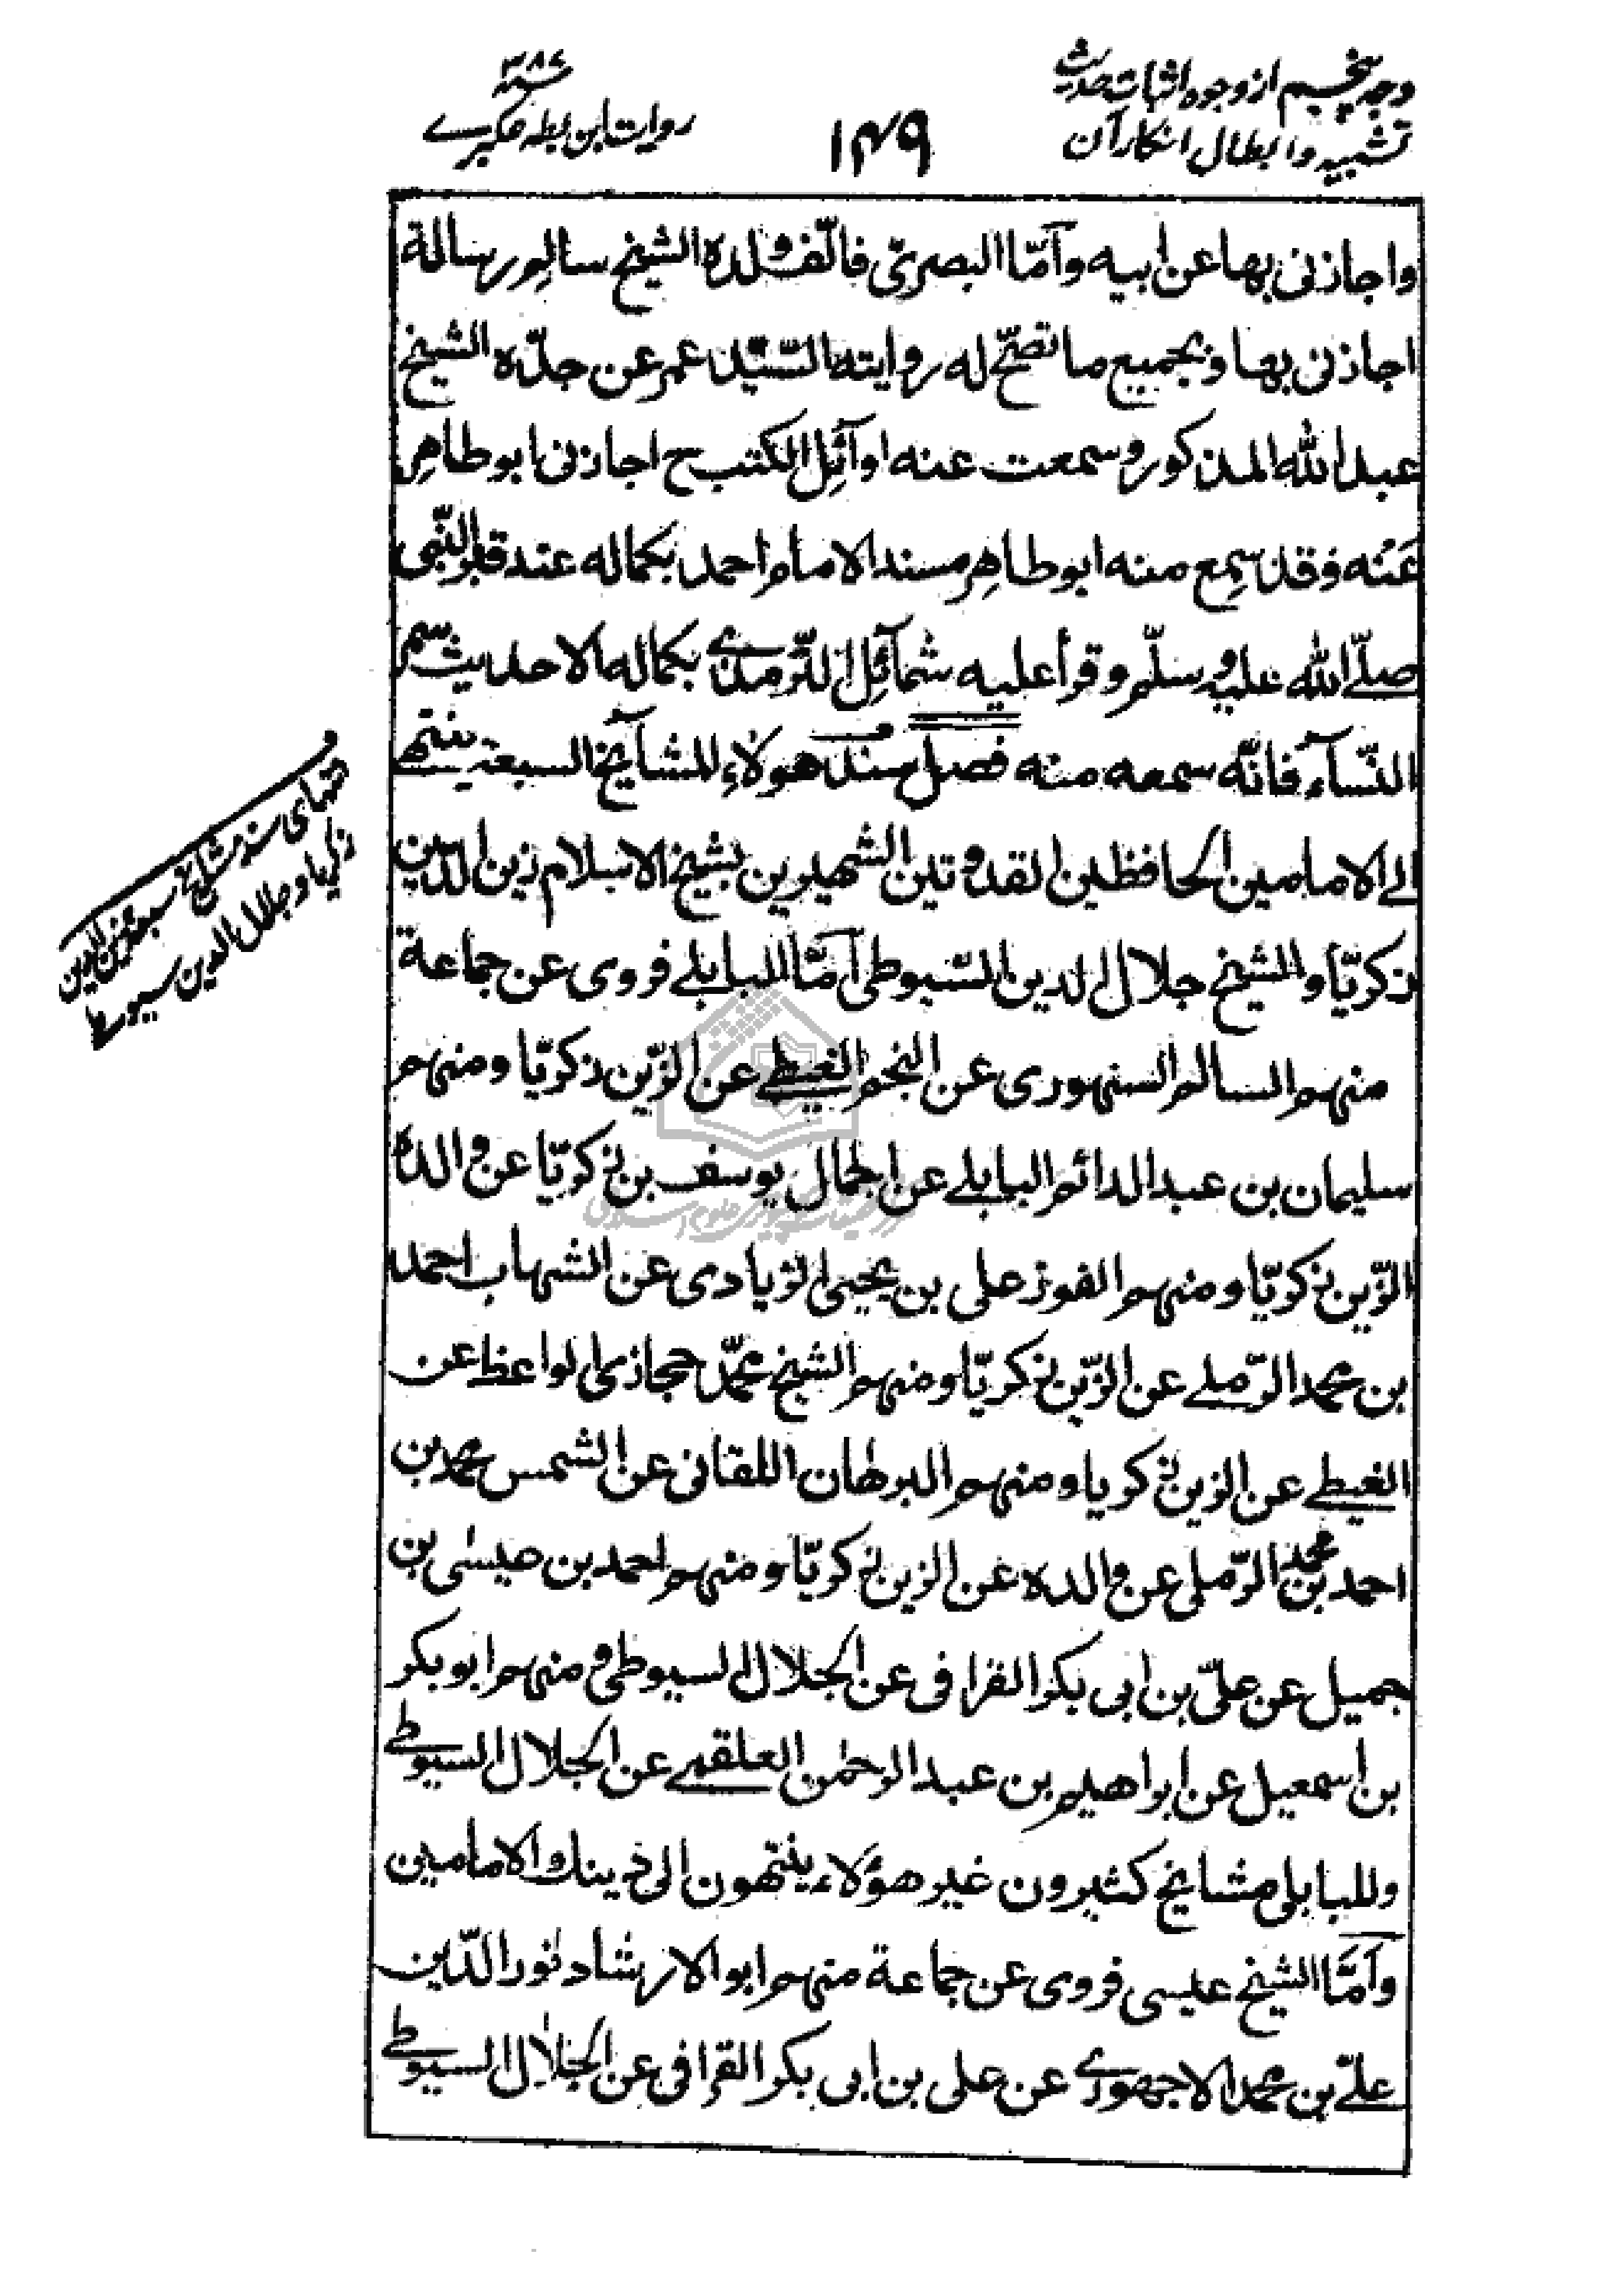 وجه پنجم از وجوه اثبات حدیث
تشبیه و ابطال انکار آن
۱۴۹
سنه ۳۸۷
روایت ابن بطه عکبرے
واجازنی بها عن ابیه وآمّا البصریّ فالّف ولده الشیخ سالم رسالة
اجازنی بها وبجمیع ما تصحّ له روایته السّیّد عمر عن جدّه الشیخ
عبد الله المذکور وسمعت عنه اوآئل الکتب ح اجازنی ابو طاهر
عَنْه وقد سمِع منه ابو طاهِر مسند الامام احمد بکماله عند قبر النّبی
صلّے الله علیه وسلّم وقرأ علیه شمآئل الترّمذے بکماله الا حدیث سمر
النّسآء فانّه سمعه منه فصل سند هولاء المشآیخ السبعة ینتهے
الے الامامین الحافظین القدوتین الشهیرین بشیخ الاسلام زین الدین
زکریّا والشیخ جلال الدین السّیوطی آمّا البابلے فروی عن جماعة
منهم السالم السنهوری عن النجم الغیطے عن الزّین زکریّا ومنهم
سلیمان بن عبد الدائم البابلے عن الجمال یوسف بن زکریّا عن والده
الزّین زکریّا ومنهم الفوز علی بن یحیی الزیادی عن الشهاب احمد
بن محمد الرّملے عن الزّین زکریّا ومنهم الشیخ محمّد حجازی الواعظ عن
الغیطے عن الزین زکریا ومنهم البرهان اللقانی عن الشمس محمد بن
احمد بن محمد الرّملی عن والده عن الزین زکریّا ومنهم احمد بن عیسی بن
جمیل عن علیّ بن ابی بکر القرافی عن الجلال السیوطی ومنهم ابو بکر
بن اسمعیل عن ابراهیم بن عبد الرحمن العلقمے عن الجلال السیوطے
وللبابلی مشایخ کثیرون غیر هؤلاء ینتهون الی ذینک الامامین
وآمّا الشیخ عیسی فروی عن جماعة منهم ابو الارشاد نور الدّین
علےّ بن محمد الاجهورے عن علی بن ابی بکر القرافی عن الجلال السیوطے
منتهای سند مشایخ سبعه بزین الدین
زکریا و جلال الدین سیوطے